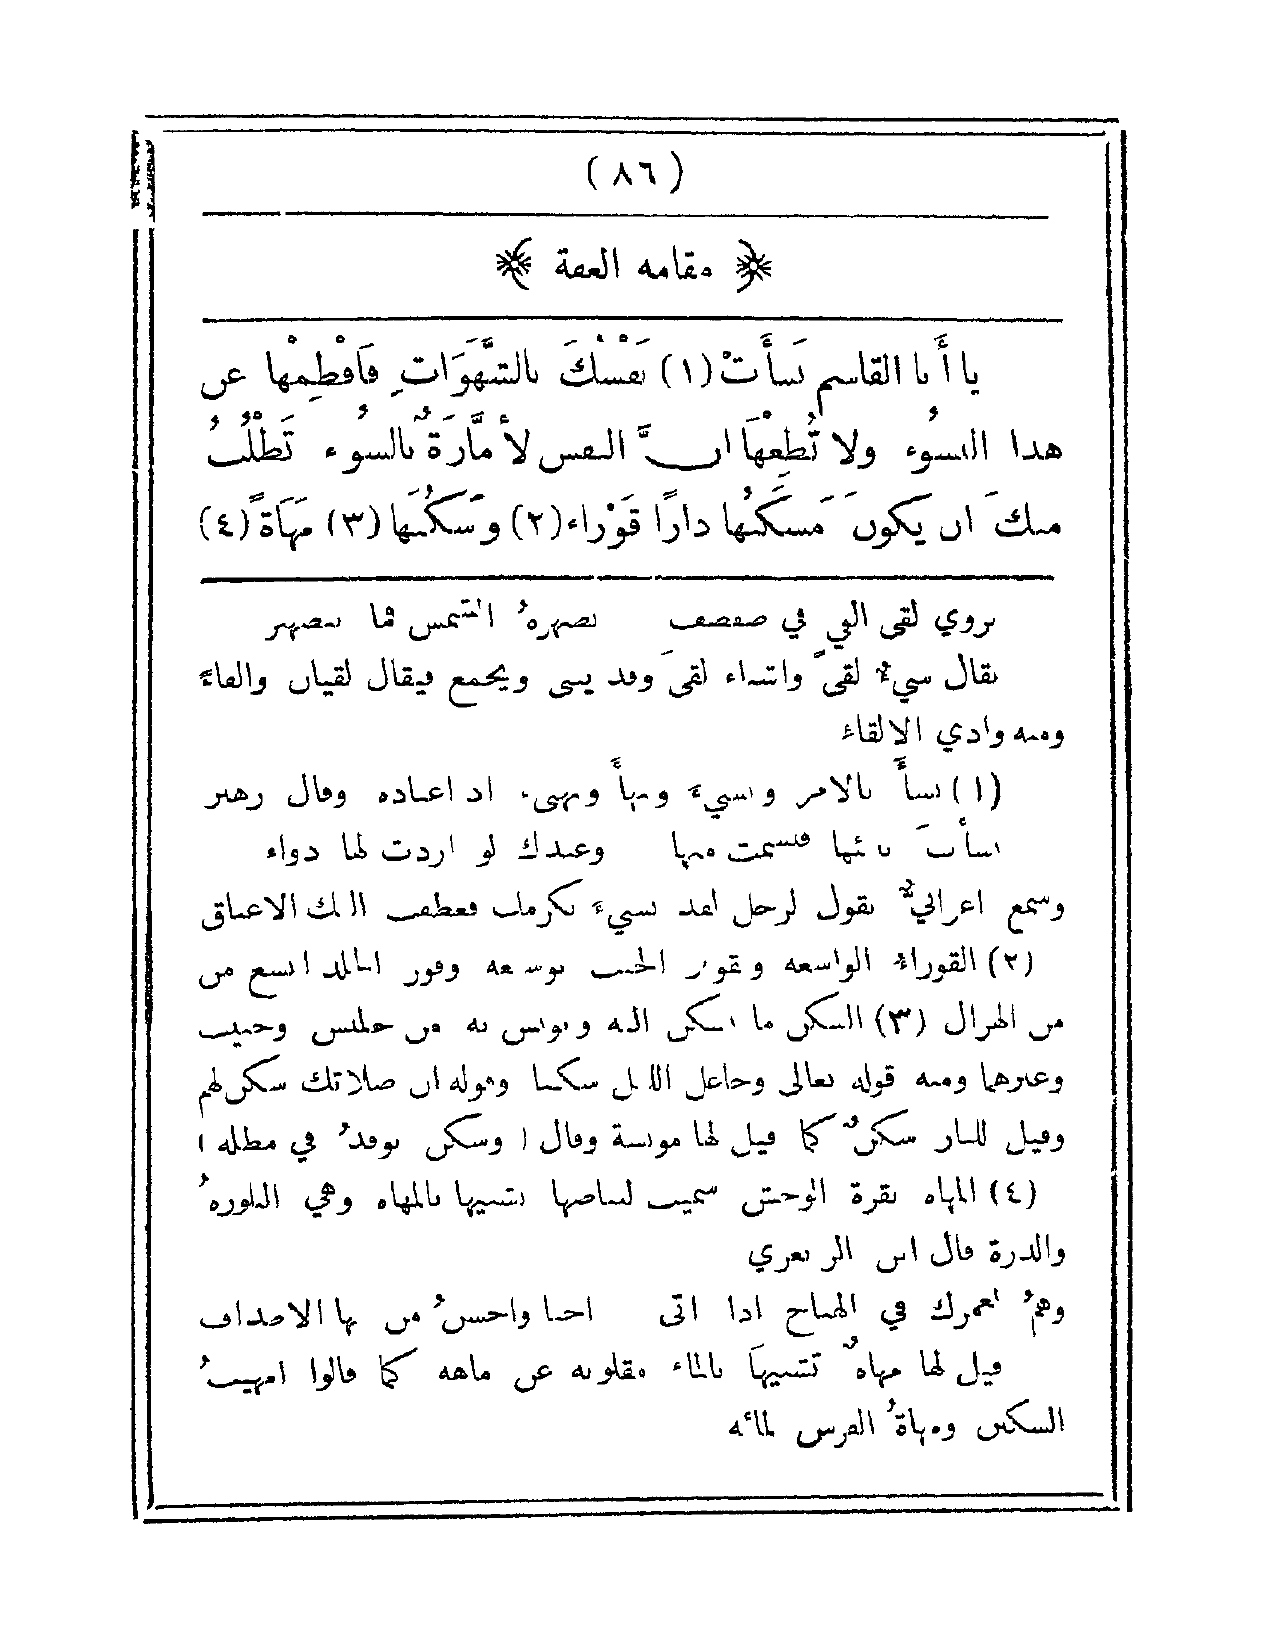 (٨٦)
﴿ مقامة العفة ﴾
يا أبا القاسم بَسَأَتْ (١) نَفْسُكَ بالشَّهَوَاتِ فَافْطِمْها عن
هذا البسوُء ولا تُطِعْهَا انَّ النفس لأمَّارَةٌ بالسوُء تَطْلُبُ
منكَ ان يكونَ مَسكَنُها دارًا قَوْراء (٢) وسَكَنُها (٣) مَهَاةً (٤)
يروي لقى القي في صفصف تصهرهُ الشمس فما ينصهر
يقال شيءٌ لقىً واشياء لقىً وقد يثنى ويجمع فيقال لقيان والقاءٌ
ومنه وادي الالقاء
(١) بسأَ بالامر وبسيءَ وبهأَ وبهىء اذا عتاده وقال زهير
بسأتَ بنيئها فبشمت منها وعندك لو اردت لها دواء
وسمع اعرابيٌّ يقول لرجل لقد بسيءَ بكرمك فعطفت اليك الاعناق
(٢) القوراءُ الواسعة وتقوير الجيب توسعة وقور الجلد اتسع من
من الهزال (٣) السكن ما يسكن اليه ويونس به من جليس وحبيب
وغيرهما ومنه قوله تعالى وجاعل الليل سكنا وقوله ان صلاتك سكن لهم
وقيل للنار سكنٌ كما قيل لها مونسة وقال ا وسكن توقدُ في مظله ا
(٤) المهاه بقرة الوحش سميت لبياضها تشبيها بالمهاه وهي البلورهُ
والدرة قال ابن الزبعري
وهمُ لعمرك في الهياج اذا اتى احيا واحسنُ من بها الاصداف
قيل لها مهاهٌ تشبيهَا بالماء مقلوبه عن ماهه كما قالوا امهيتُ
السكين ومهاةُ الفرس لمائه